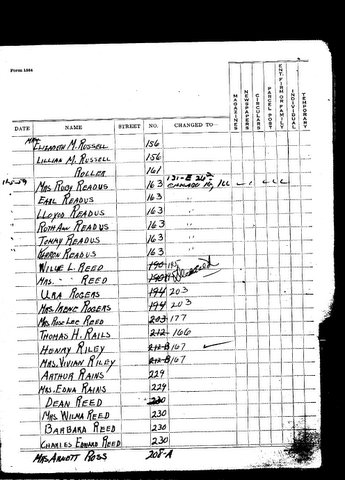 Form 1564
DATE NAME STREET NO. CHANGED TO— MAGAZINES NEWSPAPERS CIRCULARS PARCEL POST ENT. FIRM OR FAMILY INDIVIDUAL TEMPORARY
Mrs Elizabeth M. Russell 156
Lillian M. Russell 156
Roller 161
131-E 26th
Mrs Ruby Readus 163 Chicago 16, Ill
Earl Readus 163 "
Lloyd Readus 163 "
Ruth Ann Readus 163 "
Tommy Readus 163 "
Readus 163 "
Willie L. Reed 190 195 Deceased
Mrs. " Reed 190
Ura Rogers 194 203
Mrs. Irene Rogers 194 203
Mrs Rose Lee Reed 203 177
Thomas H. Rails 212 166
Henry Riley 212-B 167
Mrs. Vivian Riley 212-B 167
Arthur Rains 229
Mrs. Edna Rains 229
Dean Reed 230
Mrs Wilma Reed 230
Barbara Reed 230
Charles Edward Reed 230
Mrs. Arnett Ross 208-A